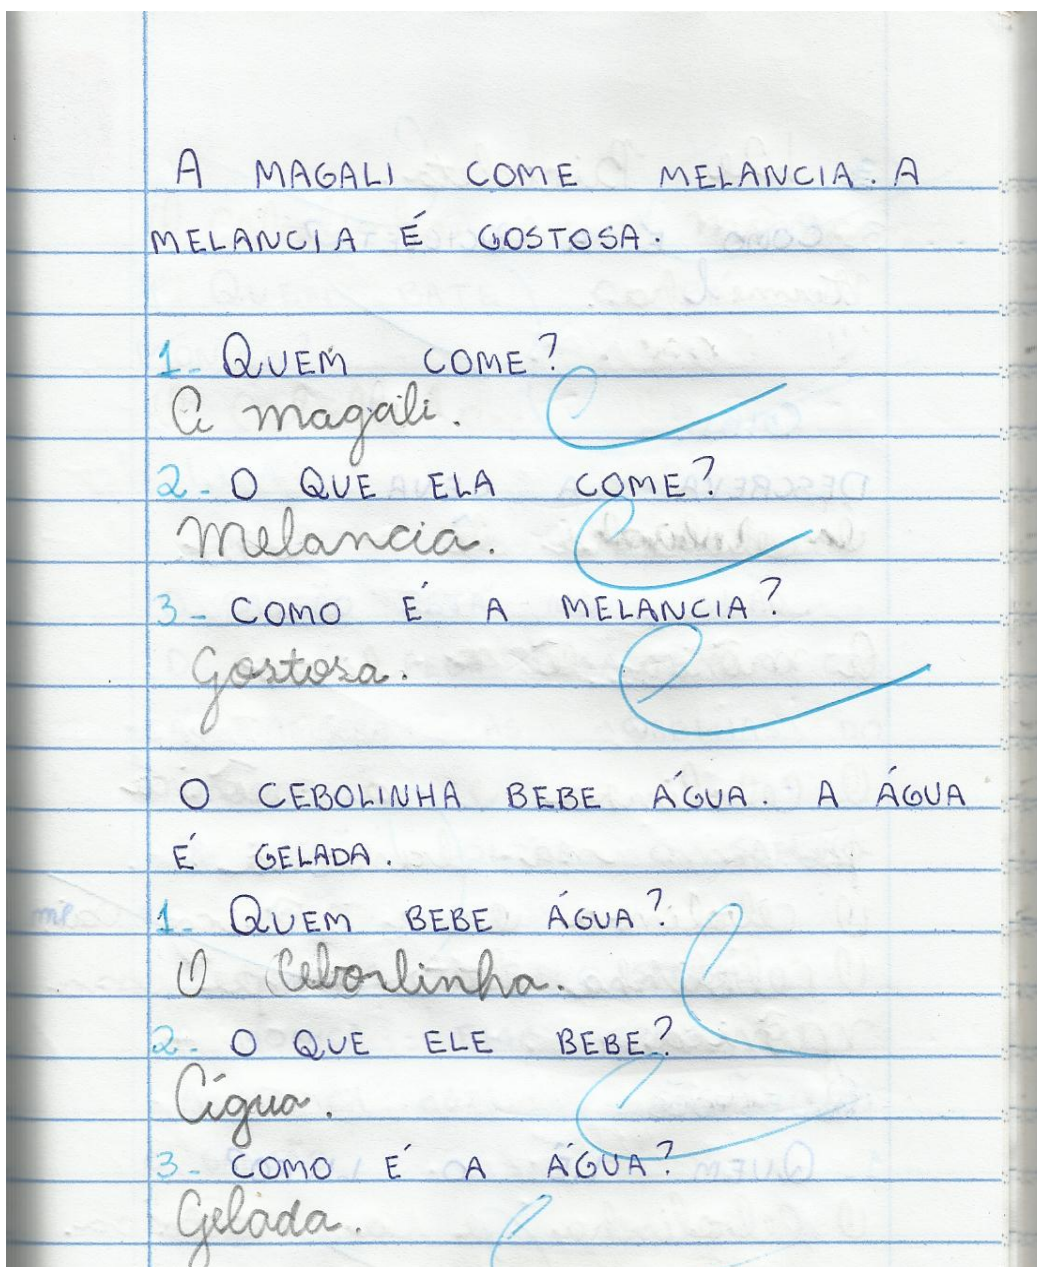 A MAGALI COME MELANCIA. A
MELANCIA É GOSTOSA.
1- QUEM COME?
A magali.
2- O QUE ELA COME?
Melancia.
3- COMO É A MELANCIA?
Gostosa.
O CEBOLINHA BEBE ÁGUA. A ÁGUA
É GELADA.
1- QUEM BEBE ÁGUA?
O Cebolinha.
2- O QUE ELE BEBE?
Água.
3- COMO É A ÁGUA?
Gelada.